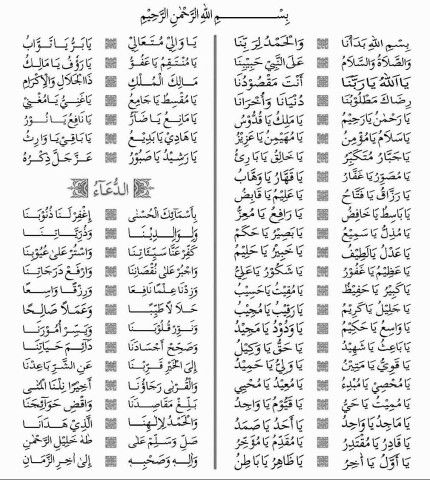 بِسْمِ اللهِ الرَّحْمٰنِ الرَّحِيْمِ
بِسْمِ اللهِ بَدَأْنَا وَالْحَمْدُ لِرَبِّنَا
وَالصَّلَاةُ وَالسَّلَامُ عَلَى النَّبِيِّ حَبِيْبِنَا
يَا اَللهُ يَا رَبَّنَا أَنْتَ مَقْصُوْدُنَا
رِضَاكَ مَطْلُوْبُنَا دُنْيَانَا وَأُخْرَانَا
يَا رَحْمٰنُ يَا رَحِيْمُ يَا مَلِكُ يَا قُدُّوْسُ
يَا سَلَامُ يَا مُؤْمِنُ يَا مُهَيْمِنُ يَا عَزِيْزُ
يَا جَبَّارُ مُتَكَبِّرُ يَا خَالِقُ يَا بَارِئُ
يَا مُصَوِّرُ يَا غَفَّارُ يَا قَهَّارُ يَا وَهَّابُ
يَا رَزَّاقُ يَا فَتَّاحُ يَا عَلِيْمُ يَا قَابِضُ
يَا بَاسِطُ يَا خَافِضُ يَا رَافِعُ يَا مُعِزُّ
يَا مُذِلُّ يَا سَمِيْعُ يَا بَصِيْرُ يَا حَكَمُ
يَا عَدْلُ يَا لَطِيْفُ يَا خَبِيْرُ يَا حَلِيْمُ
يَا عَظِيْمُ يَا غَفُوْرُ يَا شَكُوْرُ يَا عَلِيُّ
يَا كَبِيْرُ يَا حَفِيْظُ يَا مُقِيْتُ يَا حَسِيْبُ
يَا جَلِيْلُ يَا كَرِيْمُ يَا رَقِيْبُ يَا مُجِيْبُ
يَا وَاسِعُ يَا حَكِيْمُ يَا وَدُوْدُ يَا مَجِيْدُ
يَا بَاعِثُ يَا شَهِيْدُ يَا حَقُّ يَا وَكِيْلُ
يَا قَوِيُّ يَا مَتِيْنُ يَا وَلِيُّ يَا حَمِيْدُ
يَا مُحْصِيْ يَا مُبْدِئُ يَا مُعِيْدُ يَا مُحْيِيْ
يَا مُمِيْتُ يَا حَيُّ يَا قَيُّوْمُ يَا وَاجِدُ
يَا مَاجِدُ يَا وَاحِدُ يَا أَحَدُ يَا صَمَدُ
يَا قَادِرُ يَا مُقْتَدِرُ يَا مُقَدِّمُ يَا مُؤَخِّرُ
يَا أَوَّلُ يَا آخِرُ يَا ظَاهِرُ يَا بَاطِنُ
يَا وَالِيْ يَا مُتَعَالِيْ يَا بَرُّ يَا تَوَّابُ
يَا مُنْتَقِمُ يَا عَفُوُّ يَا رَؤُفُ يَا مَالِكُ
مَالِكَ الْمُلْكِ ذَا الْجَلَالِ وَالْإِكْرَامِ
يَا مُقْسِطُ يَا جَامِعُ يَا غَنِيُّ يَا مُغْنِيْ
يَا مَانِعُ يَا ضَآرُّ يَا نَافِعُ يَا نُوْرُ
يَا هَادِيْ يَا بَدِيْعُ يَا بَاقِيْ يَا وَارِثُ
يَا رَشِيْدُ يَا صَبُوْرُ عَزَّ جَلَّ ذِكْرُهُ
الدُّعَآءُ
بِأَسْمَآئِكَ الْحُسْنٰى إِغْفِرْ لَنَا ذُنُوْبَنَا
وَلِوَالِدِيْنَا وَذُرِّيَّاتِنَا
كَفِّرْ عَنَّا سَيِّئَاتِنَا وَاسْتُرْ عَلٰى عُيُوْبِنَا
وَاجْبُرْ عَلٰى نُقْصَانِنَا وَارْفَعْ دَرَجَاتِنَا
وَزِدْنَا عِلْمًا نَافِعًا وَرِزْقًا وَاسِعًا
حَلَالًا طَيِّبًا وَعَمَلًا صَالِحًا
وَنَوِّرْ قُلُوْبَنَا وَيَسِّرْ أُمُوْرَنَا
وَصَحِّحْ أَجْسَادَنَا دَآئِمَ حَيَاتِنَا
إِلَى الْخَيْرِ قَرِّبْنَا عَنِ الشَّرِّ بَاعِدْنَا
وَالْقُرْبٰى رَجَاؤُنَا أَخِيْرًا نِلْنَا الْمُنٰى
بَلِّغْ مَقَاصِدَنَا وَاقْضِ حَوَآئِجَنَا
وَالْحَمْدُ لِإِلٰهِنَا الَّذِيْ هَدَانَا
صَلِّ وَسَلِّمْ عَلٰى طٰهٰ خَلِيْلِ الرَّحْمٰنِ
وَآلِهِ وَصَحْبِهِ إِلٰى آخِرِ الزَّمَانِ